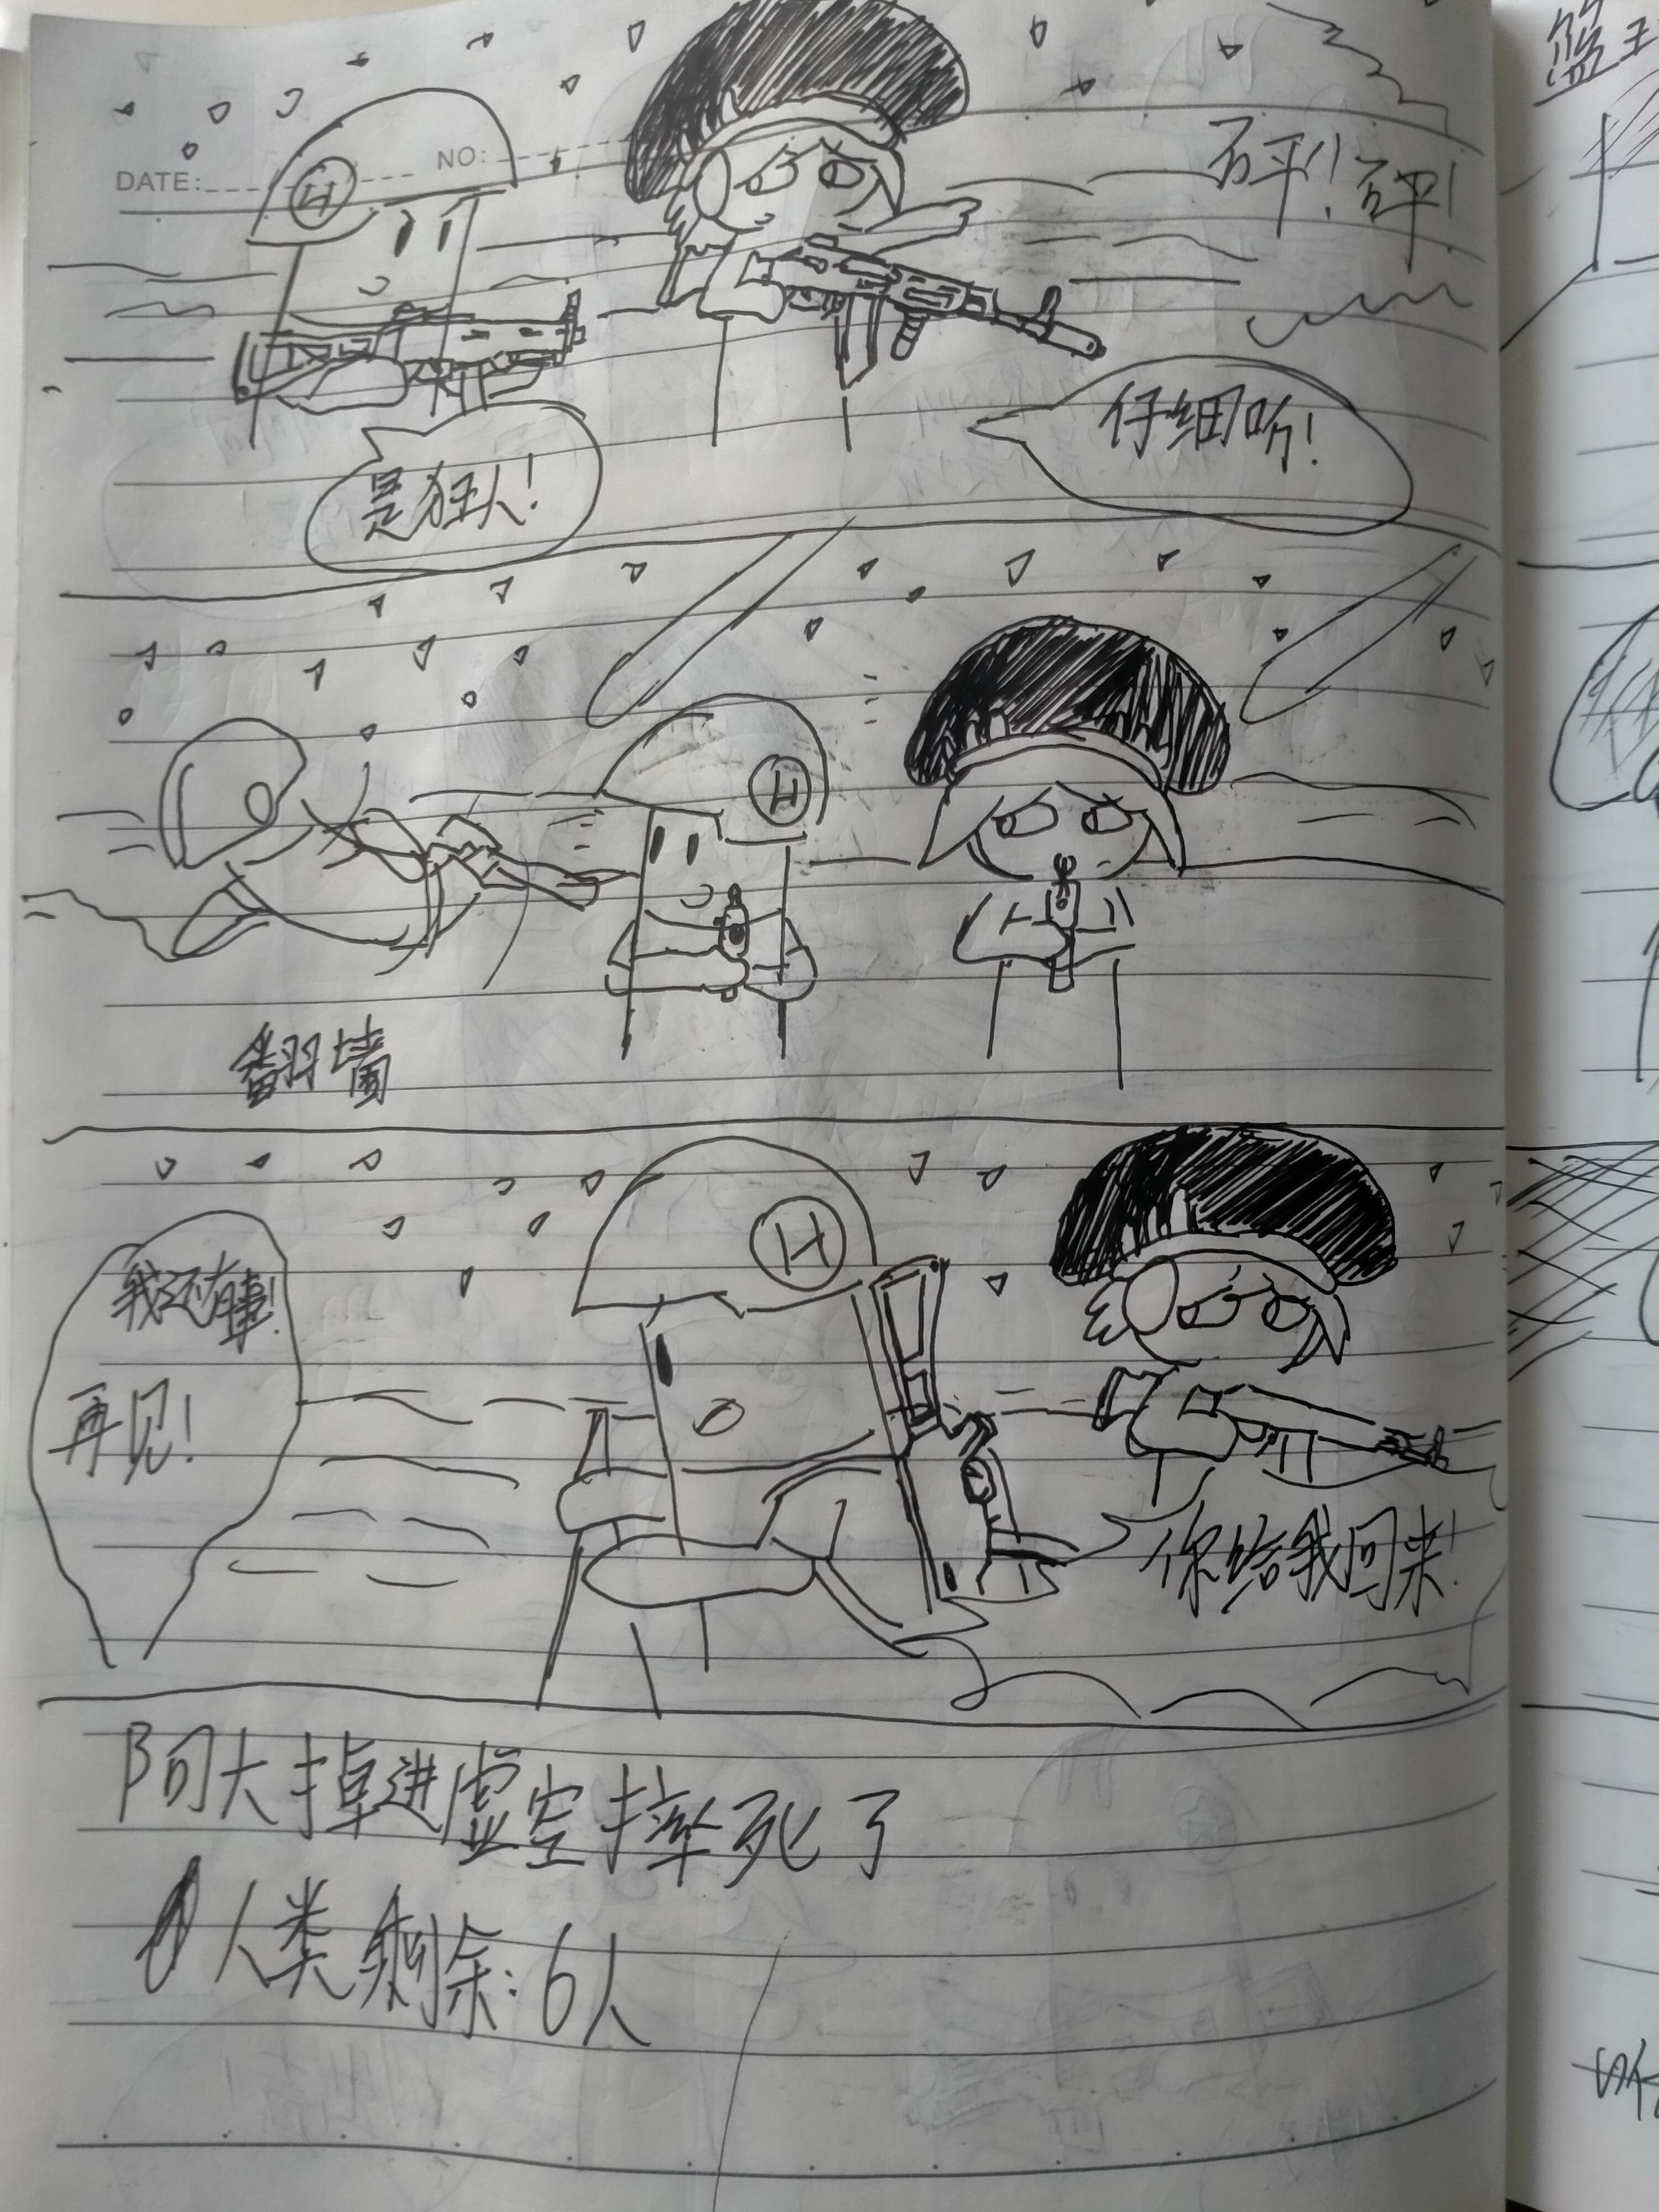 DATE:
NO:
H
砰!砰!
是狂人!
仔细听!
H
翻墙
H
我还有事!
再见!
你给我回来!
阿大掉进虚空摔死了
人类剩余:6人